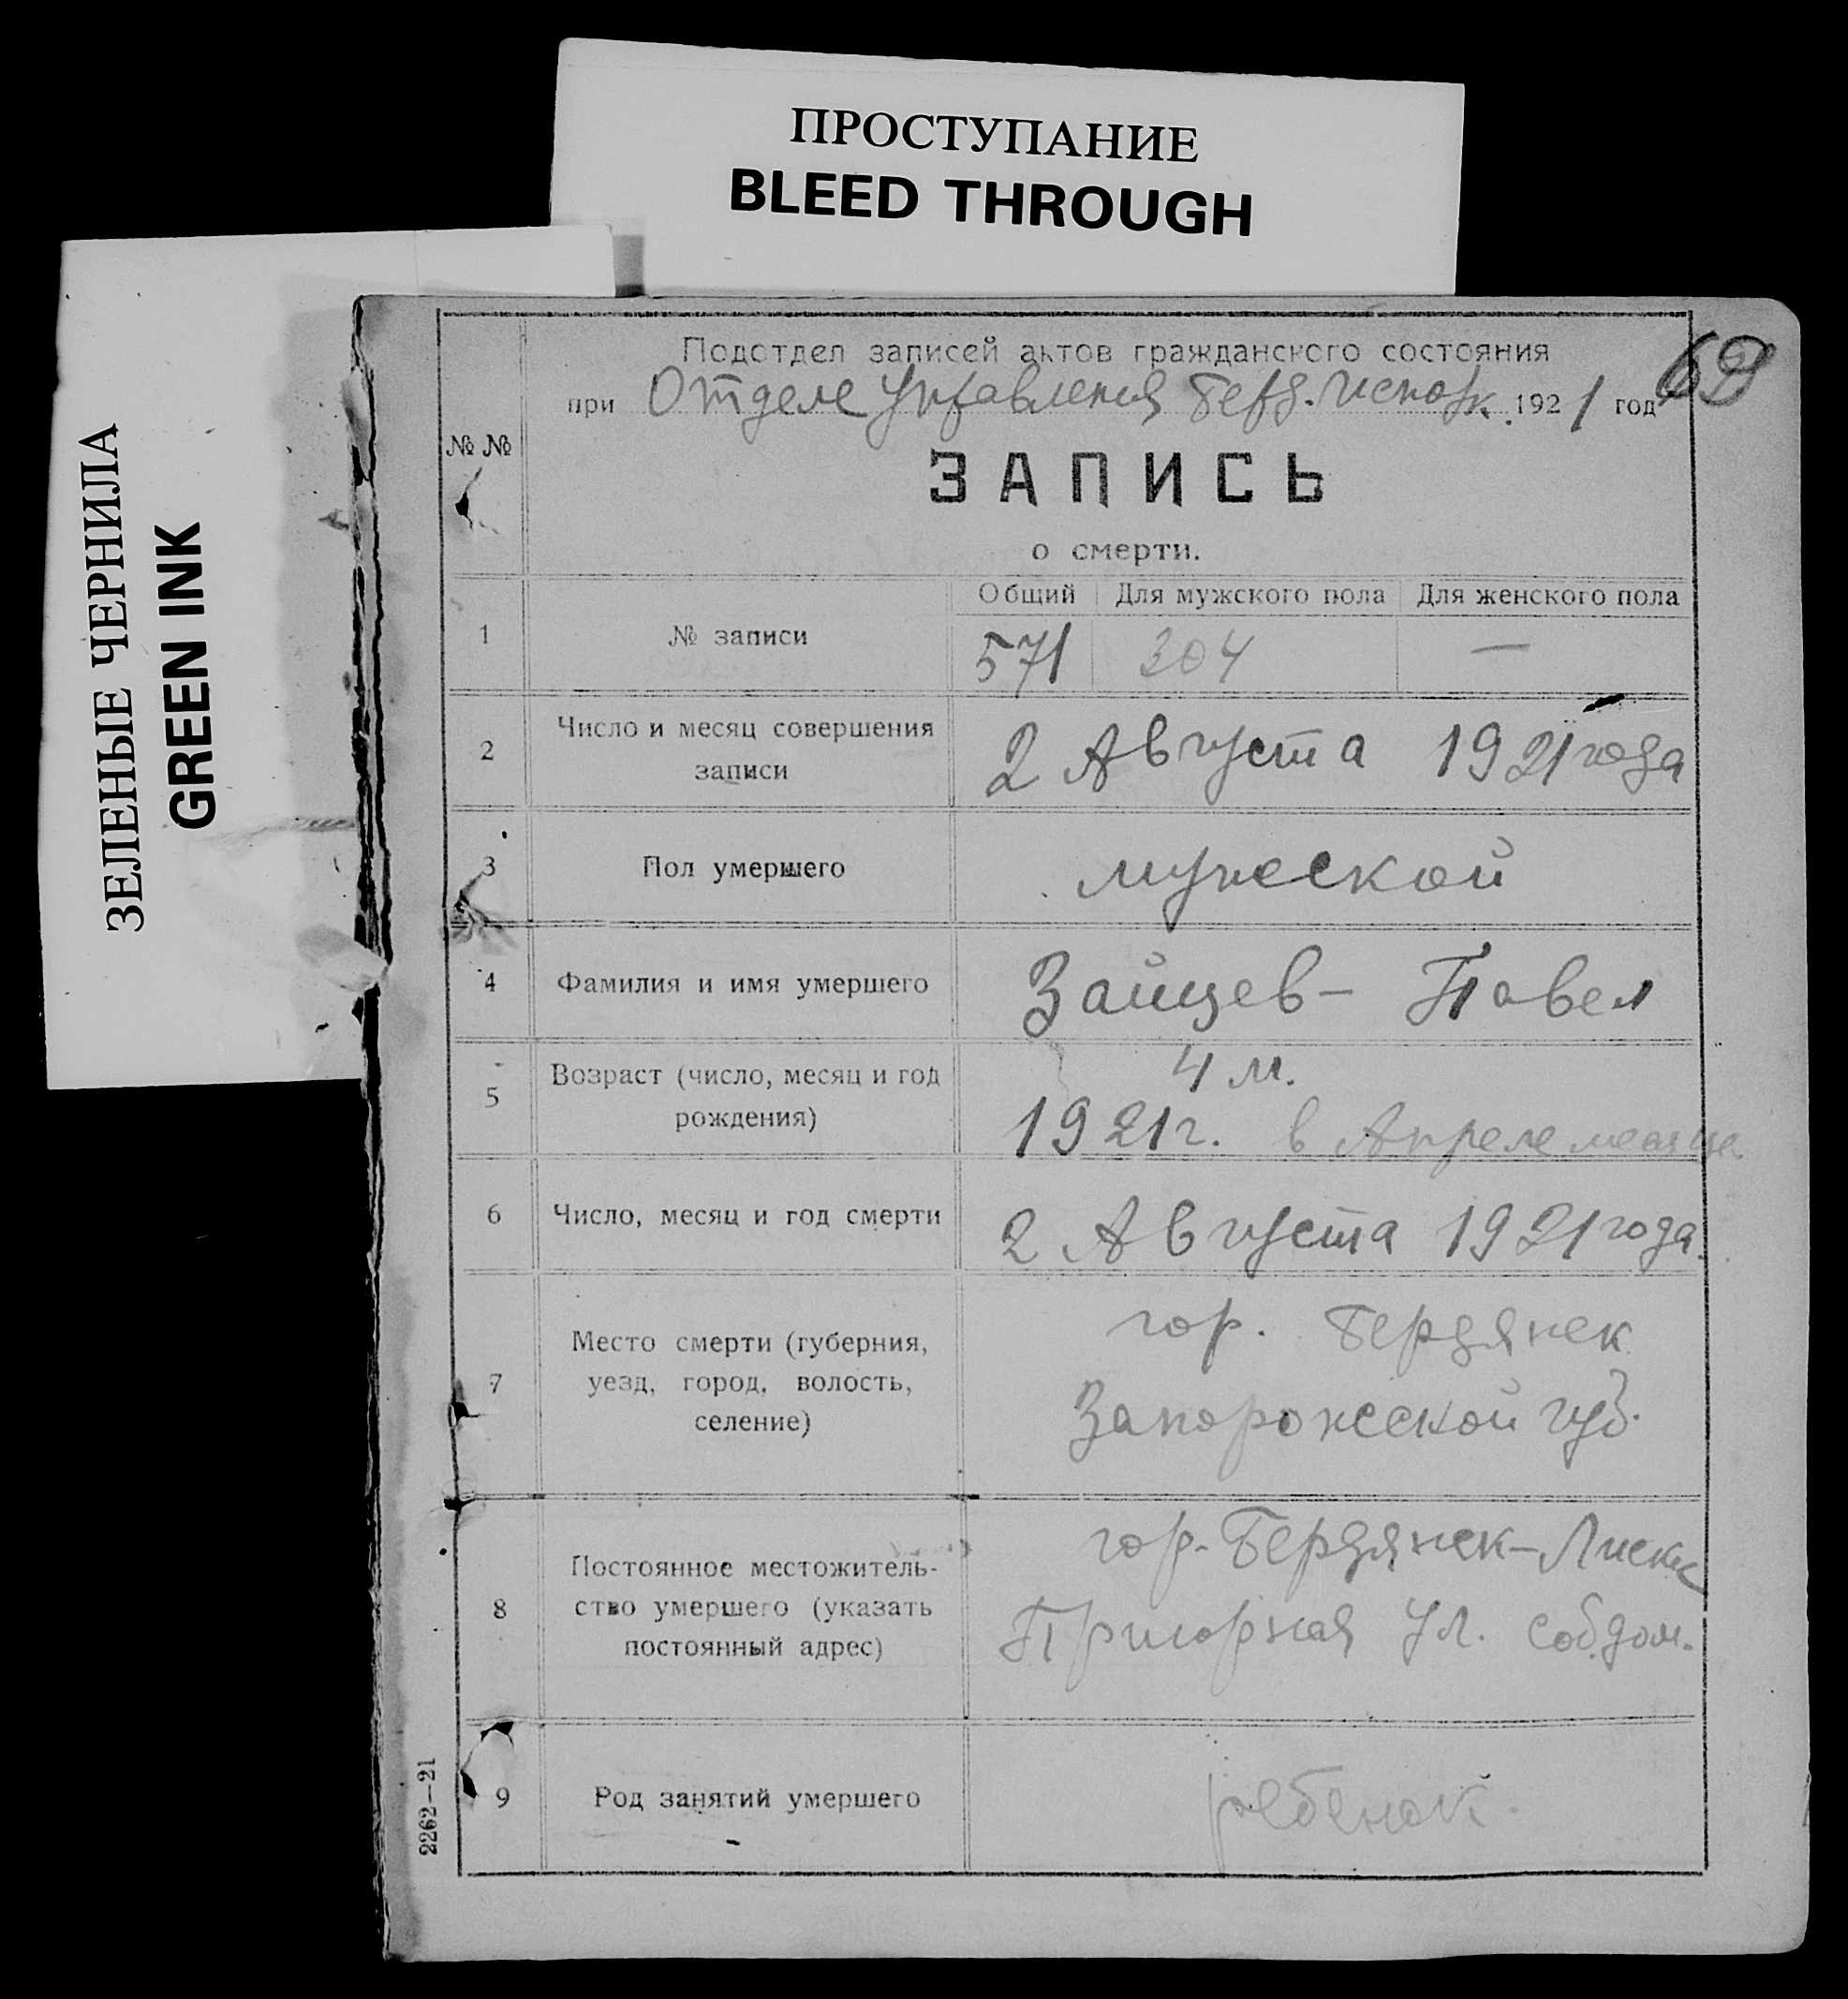 ПРОСТУПАНИЕ
BLEED THROUGH
ЗЕЛЕНЫЕ ЧЕРНИЛА
GREEN INK
Подотдел записей актов гражданского состояния
при Отделе Управления Берд. Исполк. 1921 год
69
№ №
ЗАПИСЬ
о смерти.
Общий Для мужского пола Для женского пола
1 № записи 571 304 —
2 Число и месяц совершения
записи
2 Августа 1921 года
3 Пол умершего мужской
4 Фамилия и имя умершего Зайцев - Павел
5 Возраст (число, месяц и год
рождения)
4 м.
1921 г. в Апреле месяце
6 Число, месяц и год смерти 2 Августа 1921 года.
7 Место смерти (губерния,
уезд, город, волость,
селение)
гор. Бердянск
Запорожской губ.
8 Постоянное местожитель-
ство умершего (указать
постоянный адрес)
гор. Бердянск - Лиски
Приморская ул. соб. дом.
9 Род занятий умершего ребенок.
2262—21